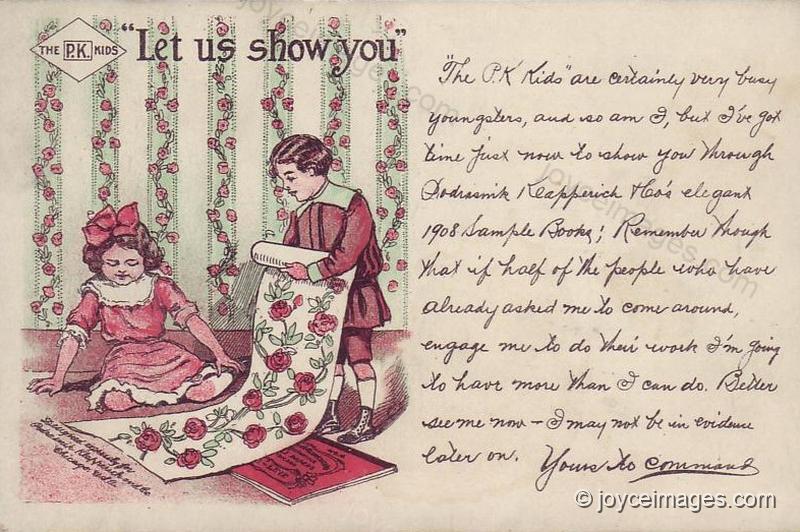 THE P.K. KIDS
"Let us show you"
"The P.K Kids" are certainly very busy
youngsters, and so am I, but I've got
time just now to show you through
Podrasnik Klapperich & Co's elegant
1908 Sample Books; Remember though
that if half of the people who have
already asked me to come around,
engage me to do their work I'm going
to have more than I can do. Better
see me now – I may not be in evidence
later on. Yours to command
© joyceimages.com